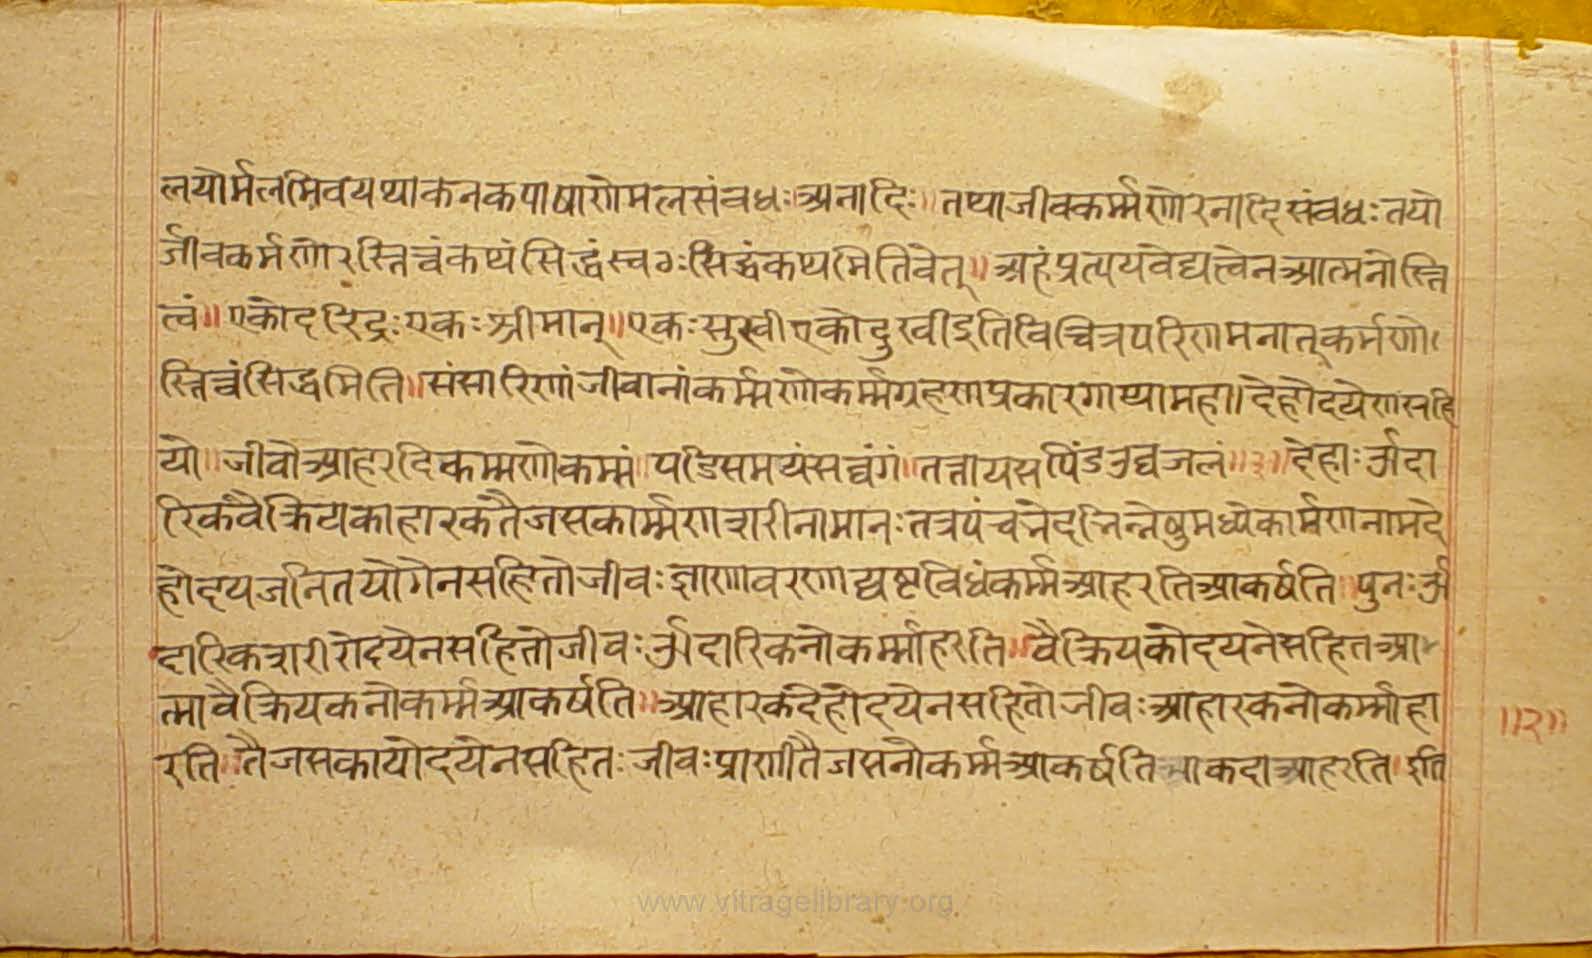 लयोर्मलमिवयथाकनकपाषाणेमलसंबधः॥अनादिः॥तथाजीवकर्म्मणोरनादिसंबधःतयो
र्जीवकर्मणोरस्तित्वंकथंसिद्धंस्वतःसिद्धंकथमितिचेत्॥अहंप्रत्ययवेद्यत्वेनआत्मनोस्ति
त्वं॥एकोदरिद्रःएकःश्रीमान्॥एकःसुखीएकोदुखीइतिविचित्रपरिणमनात्कर्मणो
स्तित्वंसिद्धमिति॥संसारिणांजीवानांकर्म्मणोकर्म्मग्रहणप्रकारगाथामहा॥देहोदयेणसहि
यो॥जीवोआहरदिकम्मणोकम्मं॥पडिसमयंसव्वंगं॥तत्तायसपिंडउव्वजलं॥३॥देहाःऔदा
रिकंवैक्रियकाहारकतैजसकार्म्मणशरीनामानःतत्रपंच
होदयजनितयोगेनसहितोजीवःज्ञाणावरणाद्यष्टविधंकर्म्मआहरतिआकर्षति॥पुनःऔ
दारिकशरीरोदयेनसहितोजीवःऔदारिकनोकर्म्माहरति॥वैक्रियकोदयनेसहितआ
त्मावैक्रियकनोकर्म्मआकर्षति॥आहारकदेहोदयेनसहितोजीवःआहारकनोकर्म्माहा
रति॥तैजसकायोदयेनसहितःजीवःप्राणीतैजसनोकर्म्मआकर्षतिआकदाआहरति॥इति
॥२॥
www.vitragelibrary.org